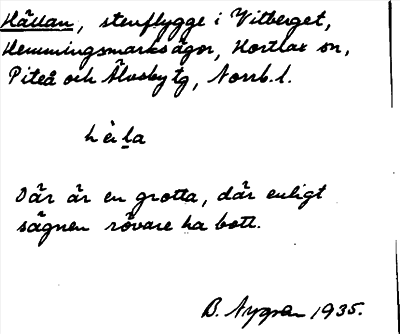 Hällan, stenflygge i Vitberget,
Hemmingsmarks ägor, Hortlax sn,
Piteå och Älvsby tg, Norrb. l.
Där är en grotta, där enligt
sägnen rövare ha bott.
B. Nygren 1935.